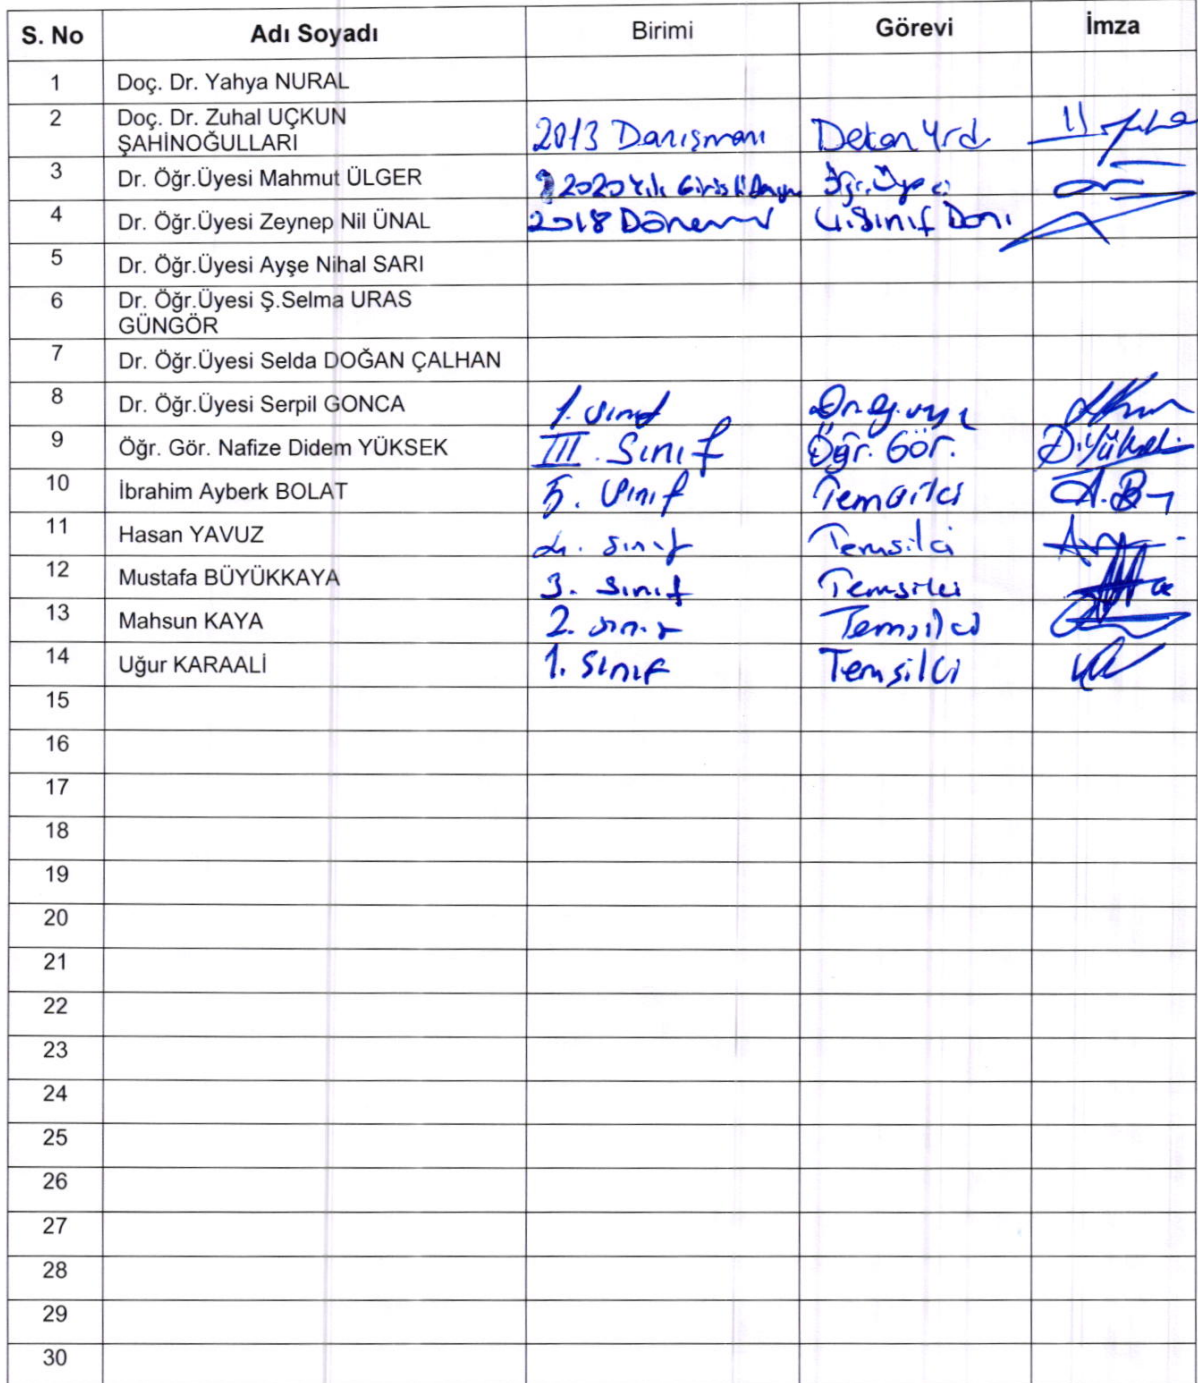 S. No Adı Soyadı Birimi Görevi İmza
1 Doç. Dr. Yahya NURAL
2 Doç. Dr. Zuhal UÇKUN
ŞAHİNOĞULLARI 2013 Danışmanı Dekan Yrd.
3 Dr. Öğr.Üyesi Mahmut ÜLGER 2020 Yılı Girişli Öğr. Üyesi
4 Dr. Öğr.Üyesi Zeynep Nil ÜNAL 2018 Dönemi 4. Sınıf Danı
5 Dr. Öğr.Üyesi Ayşe Nihal SARI
6 Dr. Öğr.Üyesi Ş.Selma URAS
GÜNGÖR
7 Dr. Öğr.Üyesi Selda DOĞAN ÇALHAN
8 Dr. Öğr.Üyesi Serpil GONCA 1. Sınıf
9 Öğr. Gör. Nafize Didem YÜKSEK III. Sınıf Öğr. Gör. D.Yüksek
10 İbrahim Ayberk BOLAT 5. Sınıf Temsilci A.B
11 Hasan YAVUZ 4. Sınıf Temsilci
12 Mustafa BÜYÜKKAYA 3. Sınıf Temsilci
13 Mahsun KAYA 2. Sınıf Temsilci
14 Uğur KARAALİ 1. Sınıf Temsilci
15
16
17
18
19
20
21
22
23
24
25
26
27
28
29
30